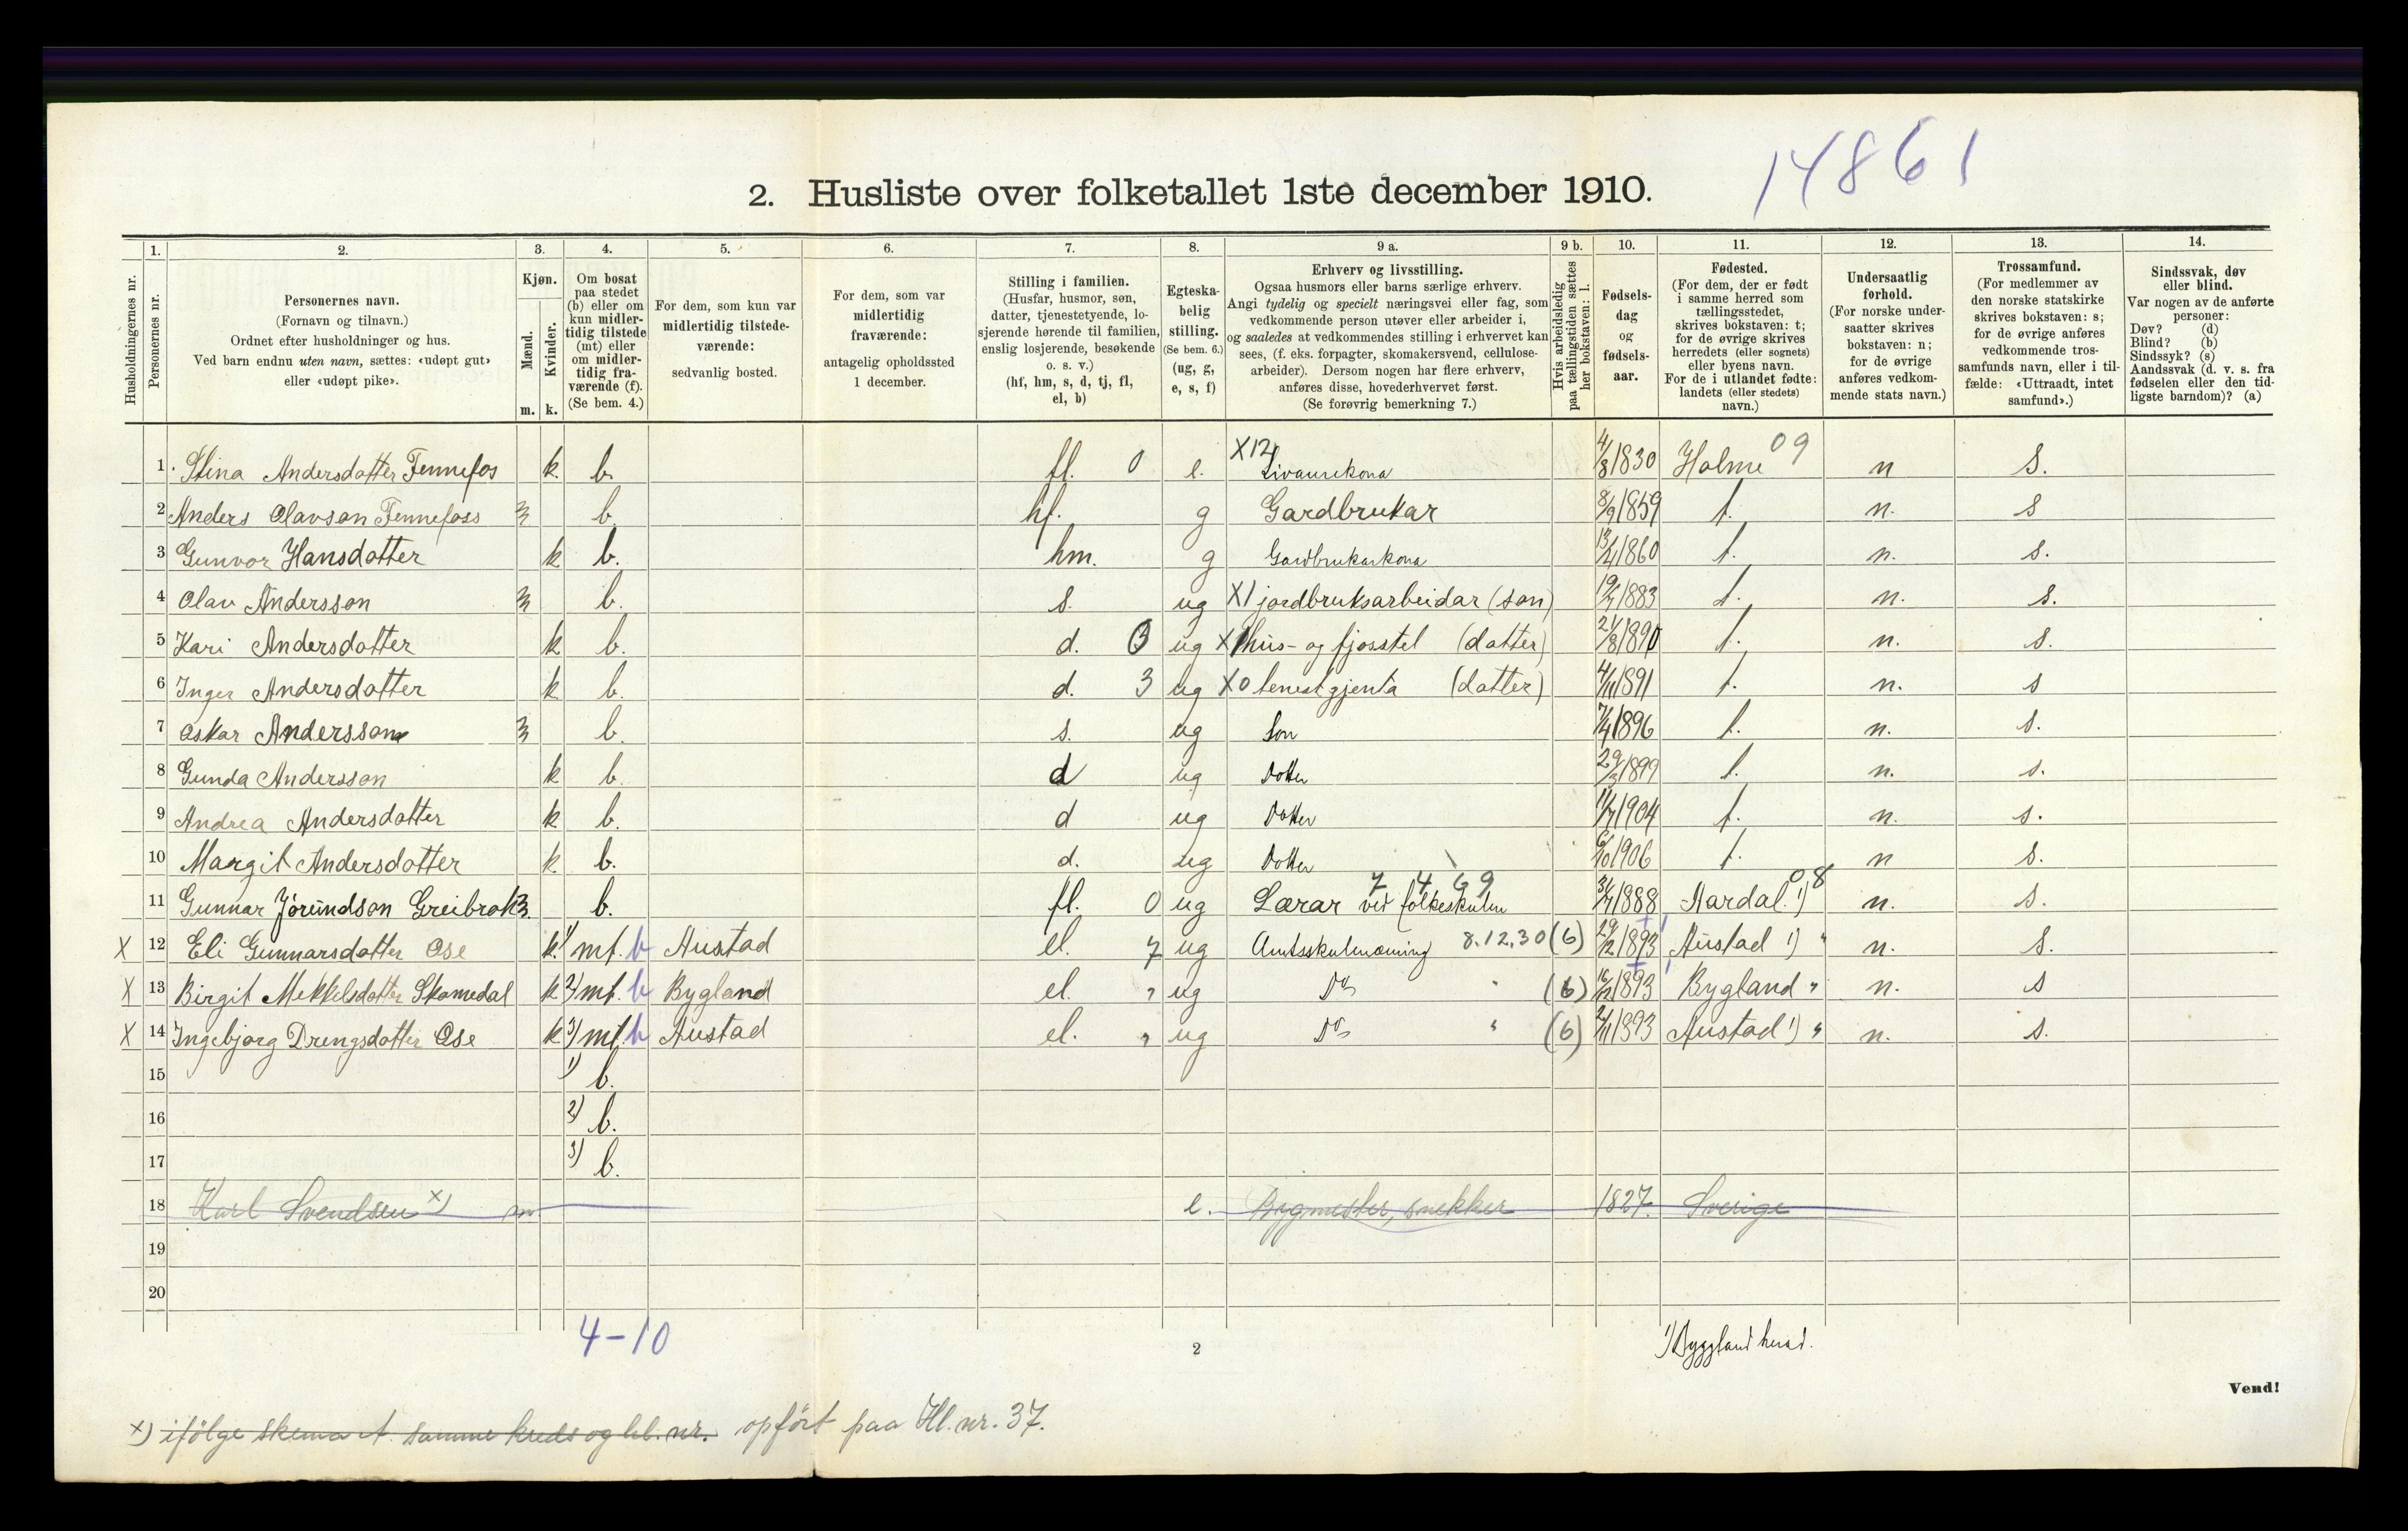 14861
2. Husliste over folketallet 1ste december 1910.
Husholdningernes nr.
1. Personernes nr.
2. Personernes navn. (Fornavn og tilnavn.) Ordnet efter husholdninger og hus. Ved barn endnu uten navn, sættes: «udøpt gut» eller «udøpt pike».
3. Kjøn. Mænd. m. Kvinder. k.
4. Om bosat paa stedet (b) eller om kun midlertidig tilstede (mt) eller om midlertidig fraværende (f). (Se bem. 4.)
5. For dem, som kun var midlertidig tilstedeværende: sedvanlig bosted.
6. For dem, som var midlertidig fraværende: antagelig opholdssted 1 december.
7. Stilling i familien. (Husfar, husmor, søn, datter, tjenestetyende, losjerende hørende til familien, enslig losjerende, besøkende o. s. v.) (hf, hm, s, d, tj, fl, el, b)
8. Egteskabelig stilling. (Se bem. 6.) (ug, g, e, s, f)
9 a. Erhverv og livsstilling. Ogsaa husmors eller barns særlige erhverv. Angi tydelig og specielt næringsvei eller fag, som vedkommende person utøver eller arbeider i, og saaledes at vedkommendes stilling i erhvervet kan sees, (f. eks. forpagter, skomakersvend, cellulosearbeider). Dersom nogen har flere erhverv, anføres disse, hovederhvervet først. (Se forøvrig bemerkning 7.)
9 b. Hvis arbeidsledig paa tællingstiden sættes her bokstaven: l.
10. Fødselsdag og fødselsaar.
11. Fødested. (For dem, der er født i samme herred som tællingsstedet, skrives bokstaven: t; for de øvrige skrives herredets (eller sognets) eller byens navn. For de i utlandet fødte: landets (eller stedets) navn.)
12. Undersaatlig forhold. (For norske undersaatter skrives bokstaven: n; for de øvrige anføres vedkommende stats navn.)
13. Trossamfund. (For medlemmer av den norske statskirke skrives bokstaven: s; for de øvrige anføres vedkommende trossamfunds navn, eller i tilfælde: «Uttraadt, intet samfund».)
14. Sindssvak, døv eller blind. Var nogen av de anførte personer: Døv? (d) Blind? (b) Sindssyk? (s) Aandssvak (d. v. s. fra fødselen eller den tidligste barndom)? (a)
1 Stina Andersdatter Fennefos k. b. fl. 0 e. X12 Livaurekona 4/8 1830 Holme 09 n s.
2 Anders Olavson Fennefoss m b. hf. g Gardbrukar 8/9 1859 t. n. s
3 Gunvor Hansdatter k b. hm. g Gardbrukarkona 1860 t. n. s.
4 Olav Andersson m b. s. ug X1 jordbruksarbeidar (son) 1883 t. n. s.
5 Kari Andersdatter k b. d. ug X hus- og fjosstel (datter) 24/8 1890 t. n. s.
6 Inger Andersdatter k b. d. 3 ug X0 tenestgjenta (datter) 4/11 1891 t. n. s
7 Oskar Andersson m b. s. ug Son 7/4 1896 t. n. s.
8 Gunda Andersson k b. d ug Dotter 1899 t. n. s.
9 Andrea Andersdatter k b. d ug Dotter 1904 t. n. s.
10 Margit Andersdotter k. b. d. ug Dotter 6/10 1906 t. n s.
11 Gunnar Jørundson Greibrok m. b. fl. 0 ug Lærar ved folkeskulen 7 4 69 1888 Aardal 1) 08 n. s.
X 12 Eli Gunnarsdatter Ose k. 1) mt. b Austad el. 7 ug Amtsskulnæming 8.12.30 (6) 29/12 1893 Austad 1) " n. s.
X 13 Birgit Mekkelsdatter Skomedal k 2) mt. b Bygland el. " ug Do " (6) 16/12 1893 Bygland " n. s
X 14 Ingebjørg Drengsdatter Ose k 3) mt. b Austad el. " ug Do " (6) 2/11 1893 Austad 1) " n. s.
15 1) b.
16 2) b.
17 3) b.
18 Karl Svendsen x) m e. Bygmester, snekker 1827. Sverige
19
20
4-10
2
1) Byggland herad.
Vend!
x) ifölge skema A. samme kreds og hl. nr. opfört paa Hl. nr. 37.